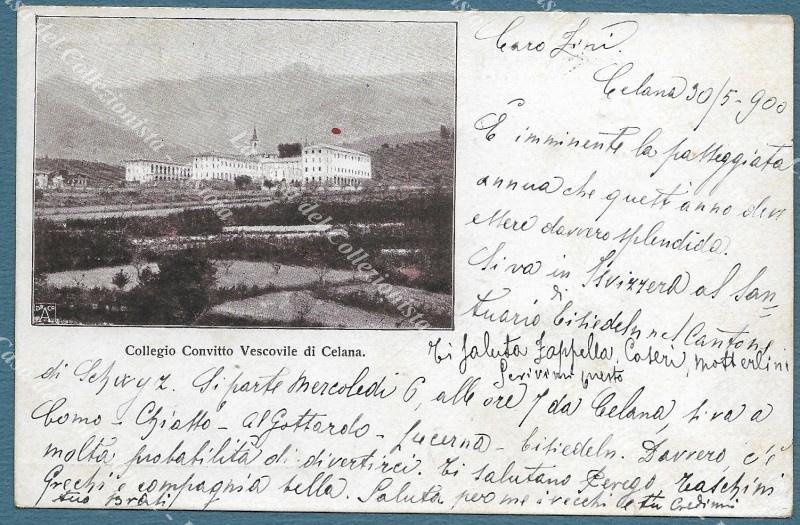 Caro Zini.
Celana 30/5-900
È imminente la passeggiata
annua che quest'anno deve
essere davvero splendida.
Si va in Svizzera al San-
tuario di Eisiedeln nel Cantone
Collegio Convitto Vescovile di Celana.
Ti saluta Zappella, Caseri, Motterlini
Scrivimi presto
di Schwyz. Si parte Mercoledì 6, alle ore 7 da Celana, si va a
Como - Chiasso - al Gottardo - Lucerna - Eisiedeln. Davvero, c'è
molta probabilità di divertirci. Ti salutano Perego, Taschini
Grechi e compagnia bella. Saluta per me i vecchi e tu credimi
tuo